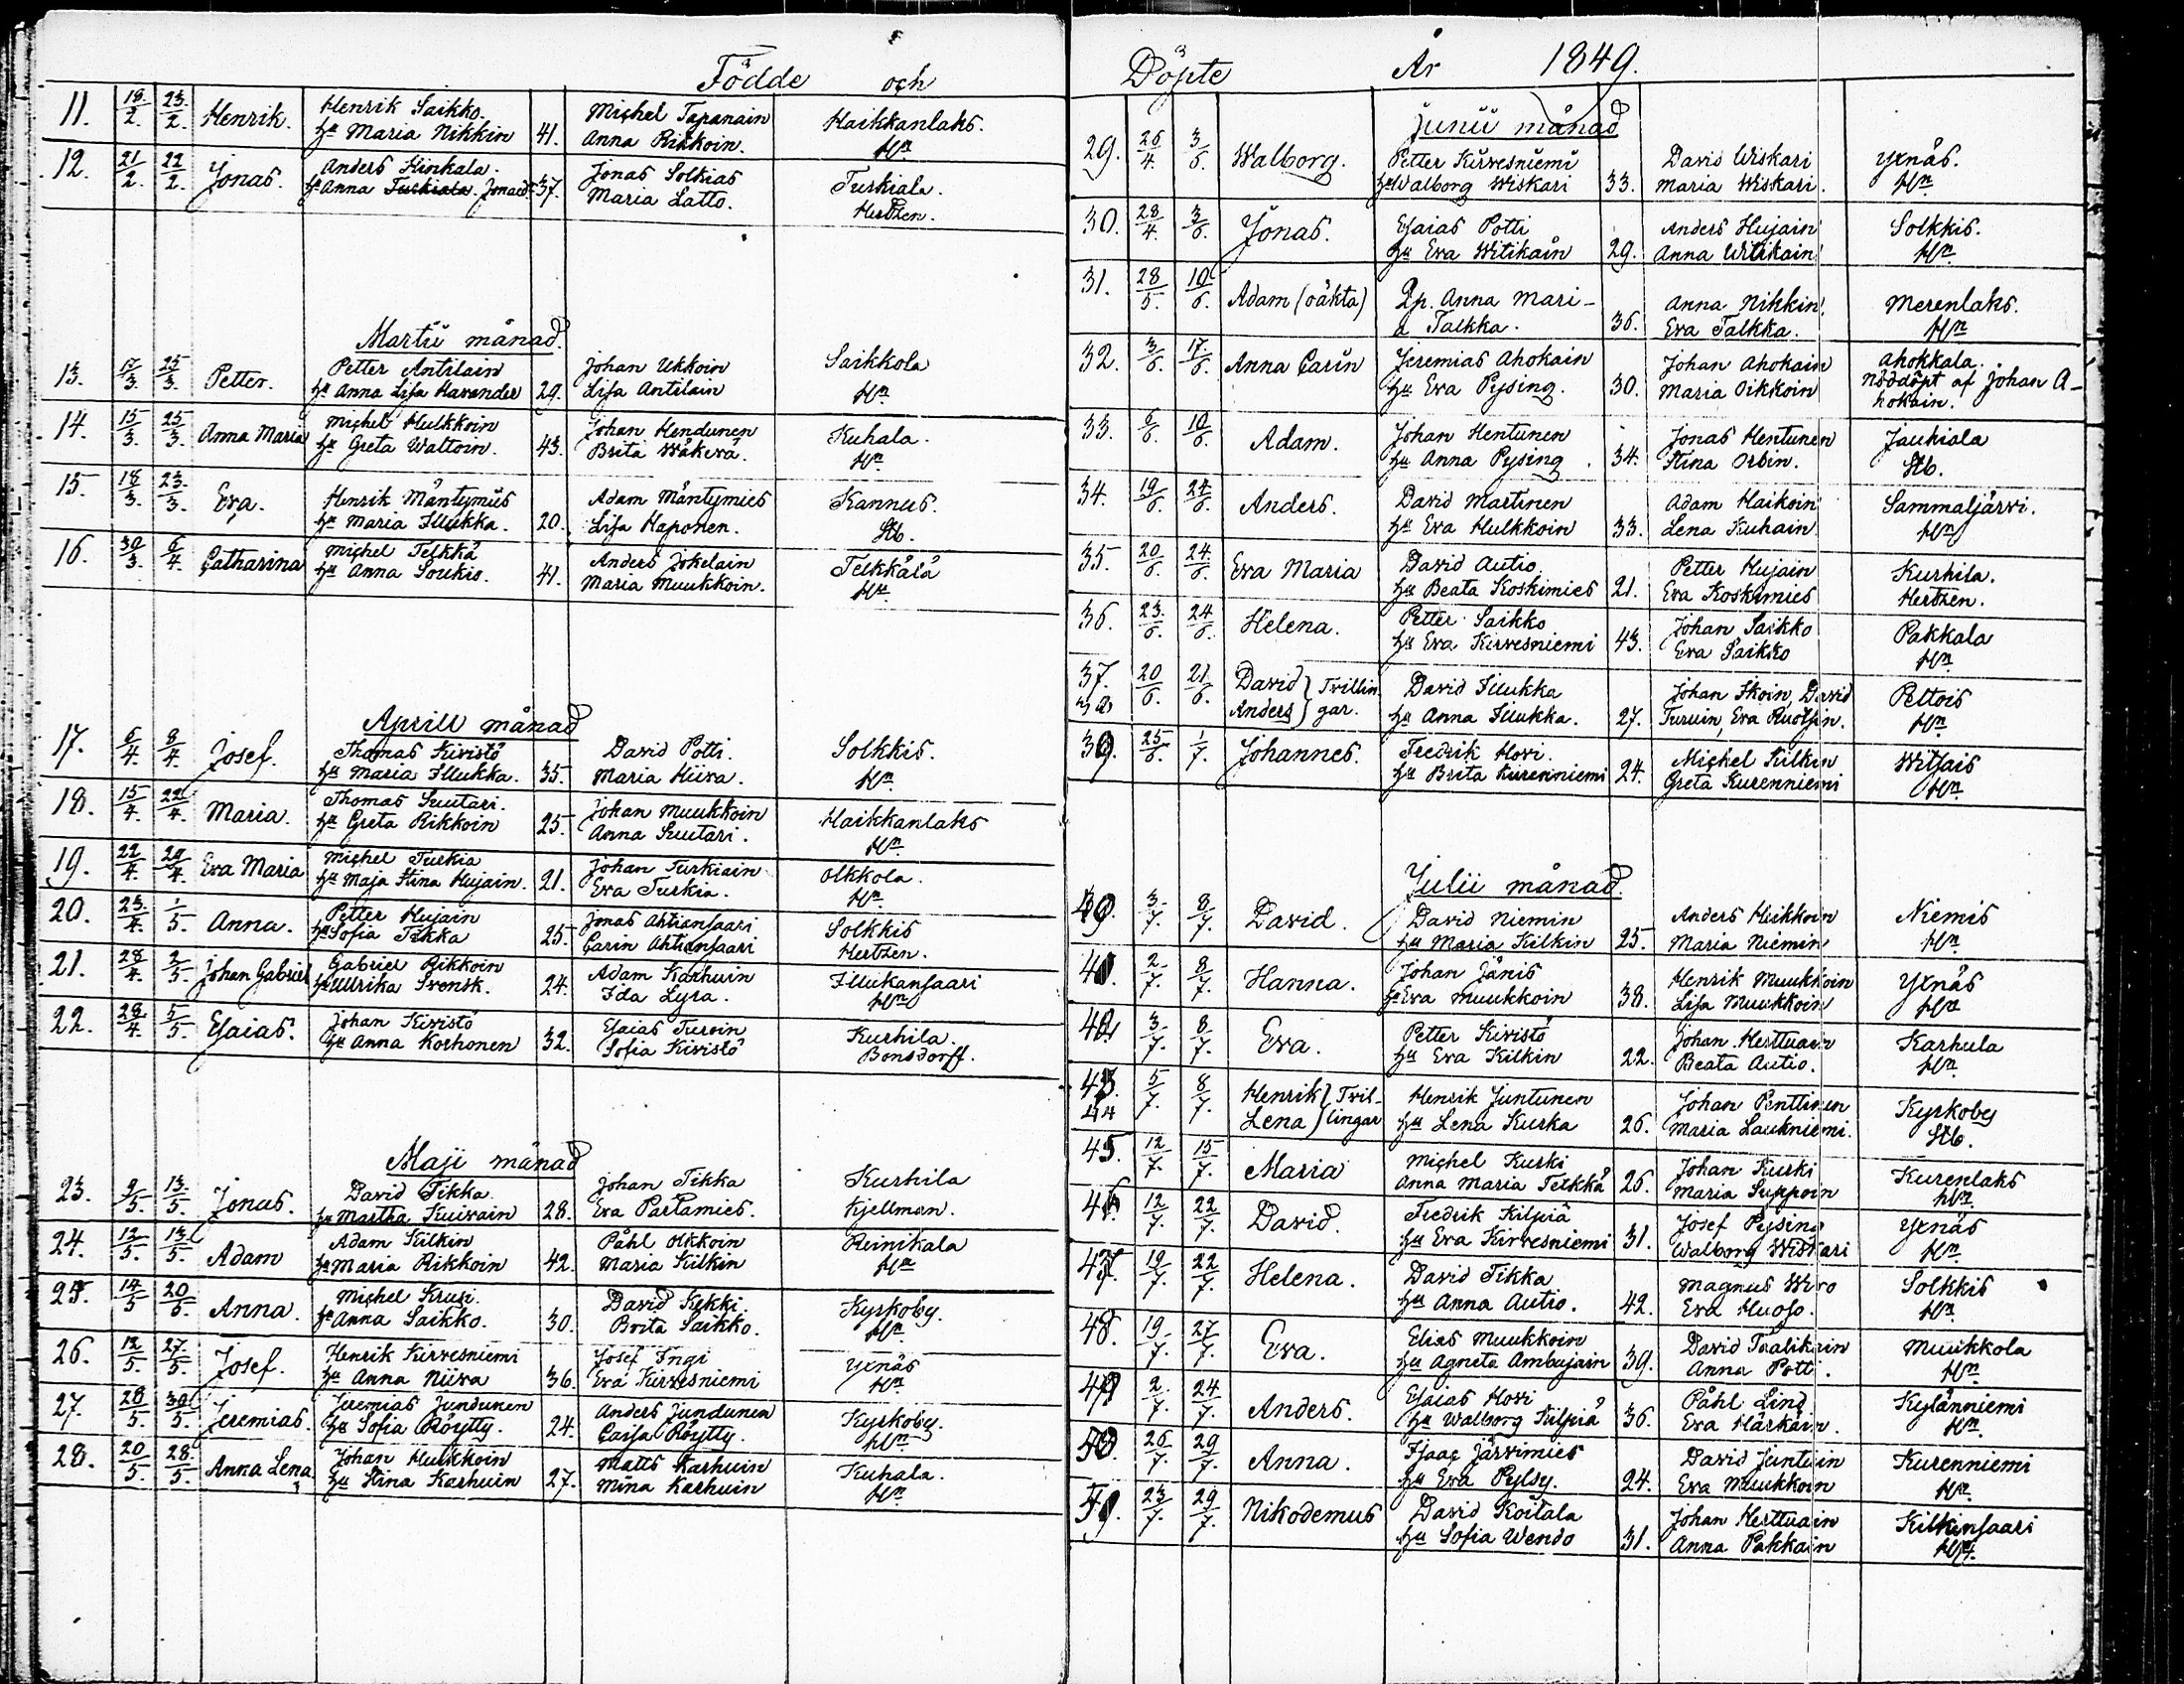 Födde och
11. 18/2. 23/2. Henrik. Henrik Saikko. Michel Tapanain Haikkanlaks.
hu Maria Nikkin 41. Anna Rikkoin. Hn
12. 21/2. 22/2. Jonas. Anders Hinkala. Jonas Solkias Turkiala.
hu Anna Turkiala Jonaed. 37. Maria Latto. Hertzen.
Martii månad.
13. 17/3. 25/3. Petter. Petter Antilain Johan Ukkoin Saikkola
hu Anna Lisa Havander 29. Lisa Antilain Hn
14. 15/3. 25/3. Anna Maria Michel Hulkkoin Johan Hendunen Kuhala.
hu Greta Wattoin. 43. Brita Wäkevä. Hn
15. 18/3. 23/3. Eva. Henrik Mäntymies Adam Mäntymies Kannus.
hu Maria Illukka. 20. Lisa Haponen. Stb.
16. 30/3. 6/4. Catharina Michel Telkkä Anders Jokelain Telkkälä
hu Anna Soukio. 41. Maria Muukkoin. Hn
Aprill månad
17. 6/4. 8/4. Josef. Thomas Kivistö David Potti. Solkkis.
hu Maria Illukka. 35. Maria Hiiva. Hn
18. 15/4. 22/4. Maria. Thomas Suutari. Johan Muukkoin Haikkanlaks
hu Greta Rikkoin 25. Anna Suutari. Hn
19. 22/4. 29/4. Eva Maria Michel Turkia Johan Turkiain Olkkola.
hu Maja Stina Hujain. 21. Eva Turkia. Hn
20. 23/4. 1/5. Anna. Petter Hujain Jonas Ahtiansaari Solkkis
hu Sofia Tikka 25. Carin Ahtiansaari Hertzen.
21. 28/4. 2/5. Johan Gabriel Gabriel Rikkoin Adam Karhuin Illukansaari
hu Ullrika Svensk. 24. Ida Lyra. Hn
22. 28/4. 5/5. Esaias. Johan Kivistö Esaias Turoin Kurhila.
hu Anna Korhonen 32. Sofia Kivistö Bonsdorff.
Maji månad
23. 9/5. 13/5. Jonas. David Tikka. Johan Tikka Kurhila
hu Martha Kuivain 28. Eva Partamies. Kjellman.
24. 12/5. 13/5. Adam Adam Kilkin Påhl Olkkoin Reinikala
hu Maria Rikkoin 42. Maria Kilkin Hn
25. 14/5 20/5. Anna. Michel Krusi. David Kekki. Kyrkoby.
hu Anna Saikko. 30. Brita Saikko. Hn
26. 12/5. 27/5. Josef. Henrik Kirvesniemi Josef Ingi Yxnäs
hu Anna Niiva 36. Eva Kirvesniemi Hn
27. 28/5. 30/5. Jeremias. Jeremias Jundunen Anders Jundunen Kyrkoby.
hu Sofia Röytty. 24. Caisa Röytty. Hn
28. 20/5. 28/5. Anna Lena. Johan Hulkkoin Matts Karhuin Kuhala.
hu Stina Karhuin 27. Mina Karhuin Hn
Döpte År 1849.
Junii månad
29. 26/4. 3/6. Walborg. Petter Kirvesniemi David Wiskari Yxnäs.
hu Walborg Wiskari 33. Maria Wiskari. Hn
30. 28/4. 3/6. Jonas. Esaias Potti Anders Hujain Solkkis.
hu Eva Witikain 29. Anna Witikain Hn
31. 28/5. 10/6. Adam (oäkta) Qp. Anna Mari- Anna Nikkin Merenlaks.
a Talkka. 36. Eva Talkka. Hn
32. 3/6. 17/6. Anna Carin Jeremias Ahokain Johan Ahokain Ahokkala.
hu Eva Pysing. 30. Maria Oikkoin Nöddöpt af Johan A-
hokain.
33. 6/6. 10/6. Adam. Johan Hentunen Jonas Hentunen Jaukiala
hu Anna Pysing. 34. Stina Orbin. Stb.
34. 19/6. 24/6. Anders. David Martinen Adam Haikoin Sammaljärvi.
hu Eva Hulkkoin 33. Lena Kuhain Hn
35. 20/6. 24/6. Eva Maria David Autio. Petter Hujain Kurhila.
hu Beata Koskimies 21. Eva Koskimies Hertzen.
36. 23/6. 24/6. Helena. Petter Saikko Johan Saikko Pakkala
hu Eva Kirvesniemi 43. Eva Saikko Hn
37. 20/6. 21/6. David } Tvillin David Illukka Johan Skoin, David Peltois
38 Anders } gar. hu Anna Illukka. 27. Turuin, Eva Ruotsin. Hn
39. 25/6. 1/7. Johannes. Fredrik Hovi. Michel Kilkin Witsais
hu Brita Kurenniemi 24. Greta Kurenniemi Hn
Julii månad.
40. 3/7. 8/7. David. David Niemin Anders Heikkoin Niemis
hu Maria Kilkin 25. Maria Niemin Hn
41. 2/7. 8/7. Hanna. Johan Jänis Henrik Muukkoin Yxnäs
hu Eva Muukkoin 38. Lisa Muukkoin Hn
42. 3/7. 8/7. Eva. Petter Kivistö Johan Herttuain Karhula
hu Eva Kilkin 22. Beata Autio. Hn
43. 5/7. 8/7. Henrik } Tvil- Henrik Juntunen Johan Penttinen Kyrkoby
44 Lena } lingar hu Lena Kurka 26. Maria Laukniemi. Stb.
45. 12/7. 15/7. Maria Michel Kurki Johan Kurki Kurenlaks
Anna Maria Telkkä 26. Maria Suppoin Hn
46. 12/7. 22/7. David. Fredrik Kilpiä Josef Pysing Yxnäs
hu Eva Kirvesniemi 31. Walborg Wiskari Hn
47. 19/7. 22/7. Helena. David Tikka Magnus Wiro Solkkis
hu Anna Autio. 42. Eva Huoso. Hn
48. 19/7. 27/7. Eva. Elias Muukkoin David Taalikain Muukkola
hu Agneta Ambujain 39. Anna Potti. Hn
49 2/7. 24/7. Anders. Esaias Hovi Påhl Lind. Kylänniemi
hu Walborg Kilpiä 36. Eva Härkäin. Hn
50. 26/7. 29/7. Anna. Isaac Järvimies David Juntuin Kurenniemi
hu Eva Pylsy. 24. Eva Muukkoin Hn
51. 23/7. 29/7. Nikodemus David Koitala Johan Herttuain Kilkinsaari
hu Sofia Wendo 31. Anna Pakkain Hn